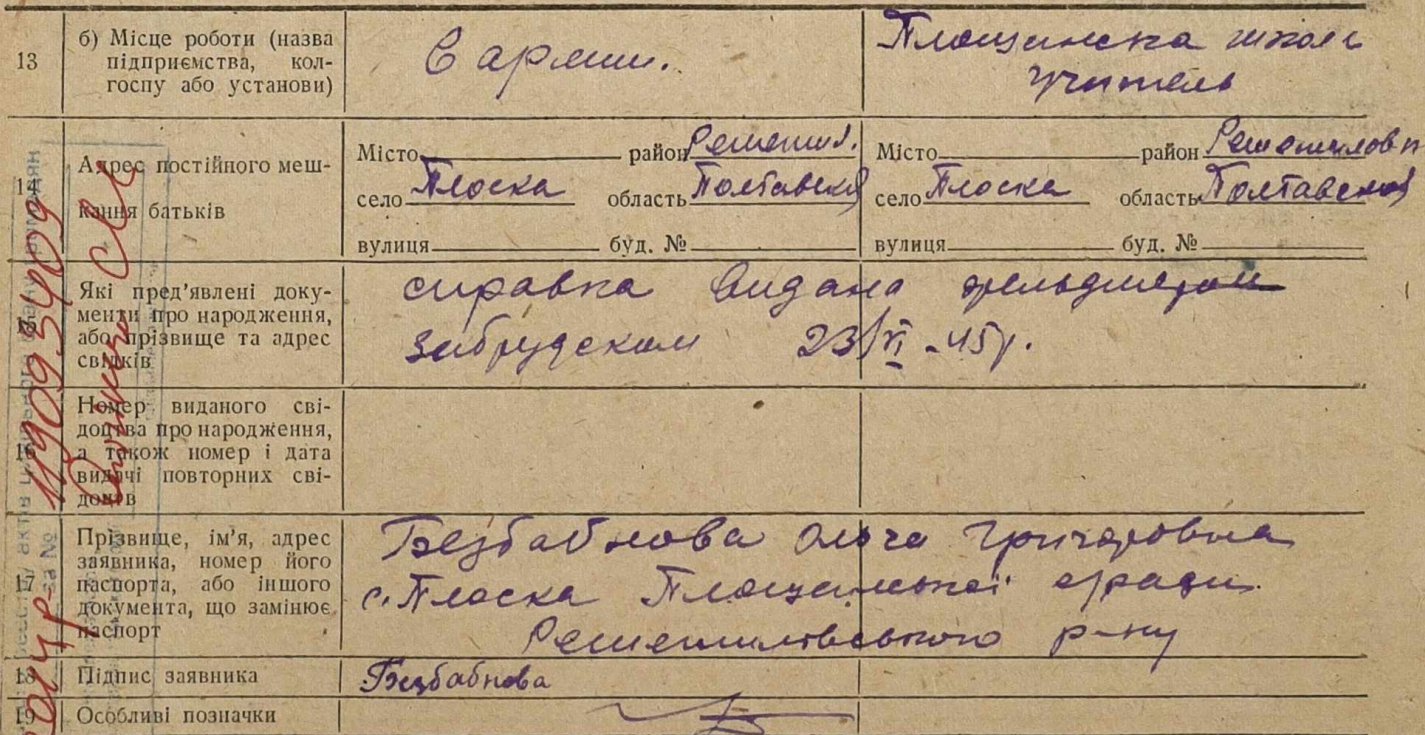 13 б) Місце роботи (назва підприємства, колгоспу або установи) В армии. Площанска школа учитель
14 Адрес постійного мешкання батьків
Місто район Решетил. Місто район Решетиловск
село Плоска область Полтавская село Плоска область Полтавская
вулиця буд. № вулиця буд. №
Які пред'явлені доку-
менти про народження,
або прізвище та адрес
свідків
справка видана фельдшером
23/VI -45 г.
16 Номер виданого сві-
доцтва про народження,
а також номер і дата
видачі повторних сві-
доцтв
17 Прізвище, ім'я, адрес
заявника, номер його
паспорта, або іншого
документа, що замінює
паспорт
Безбабнова Ольга Григоровна
с. Плоска Площанської с/ради
Решетиловського р-ну
18 Підпис заявника Безбабнова
19 Особливі позначки